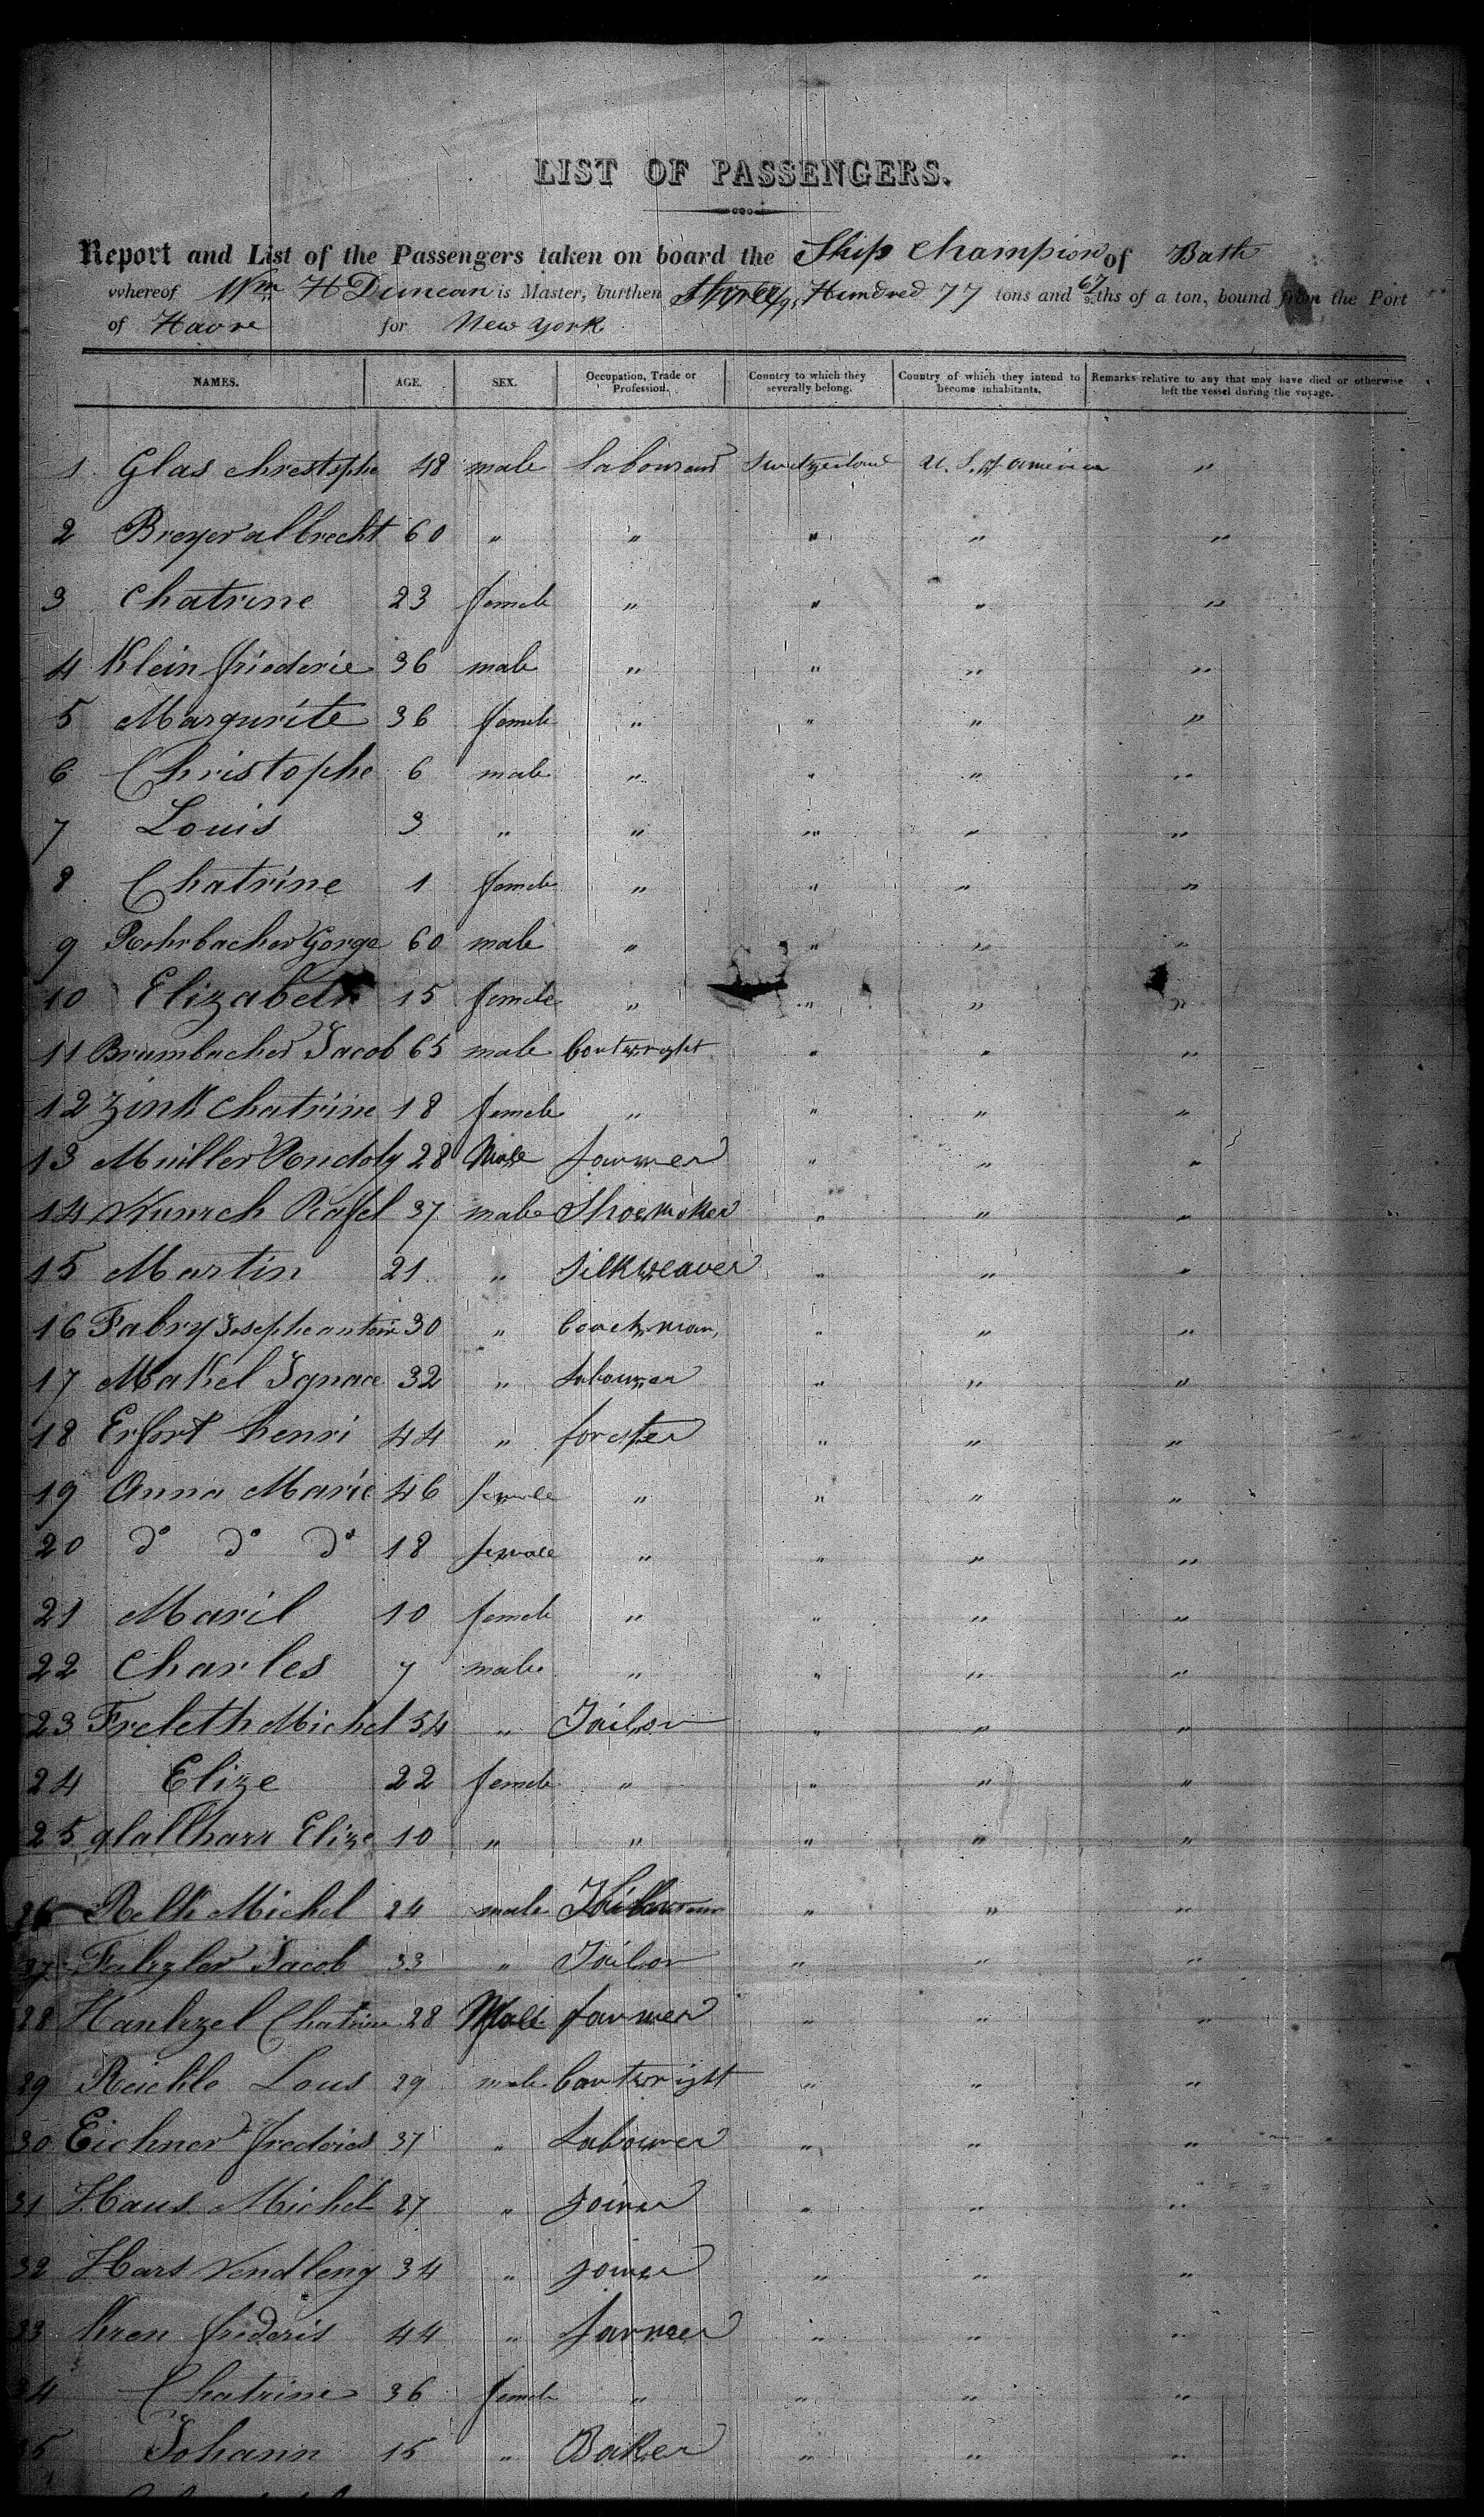 LIST OF PASSENGERS.
Report and List of the Passengers taken on board the Ship Champion of Bath
whereof Wm H Duncan is Master, burthen Three Hundred 77 tons and 67 ths of a ton, bound from the Port
of Havre for New York
NAMES. AGE. SEX. Occupation, Trade or Profession. Country to which they severally belong. Country of which they intend to become inhabitants. Remarks relative to any that may have died or otherwise left the vessel during the voyage.
1 Glas Chrestophe 48 male Switzerland U. S. of america "
2 Breyer albrecht 60 " " " " "
3 Chatrine 23 female " " " "
4 Klein friederic 36 male " " " "
5 Margurite 36 female " " " "
6 Christophe 6 male " " " "
7 Louis 3 " " " " "
8 Chatrine 1 female " " " "
9 Rohrbacher Gorge 60 male " " " "
10 Elizabeth 15 female " " " "
11 Brumbacher Jacob 65 male Cartwright " " "
12 Zink Chatrine 18 female " " " "
13 Muiller Rudoly 28 Male farmer " " "
14 37 male Shoemaker " " "
15 Martin 21 " Silkweaver " " "
16 Fabry Josephe antoin 30 " Coachman " " "
17 Makel Ignace 32 " Labourer " " "
18 Erfort henri 44 " forester " " "
19 Anna Marie 46 female " " " "
20 do do do 18 female " " " "
21 Maril 10 female " " " "
22 Charles 7 male " " " "
23 Freleth Michel 54 " Tailor " " "
24 Elize 22 female " " " "
25 Elize 10 " " " " "
26 Relk Michel 24 male " " "
27 Jacob 33 " Tailor " " "
28 Chatrine 28 Male farmer " " "
29 Reichle Lous 29 male Cartwright " " "
30 Eichner frederic 37 " Labourer " " "
31 Haus Michel 27 " Joiner " " "
32 Hars Vendleng 34 " joiner " " "
33 Kren frederis 44 " farmer " " "
34 Chatrine 36 female " " " "
35 Johann 15 " Baker " " "